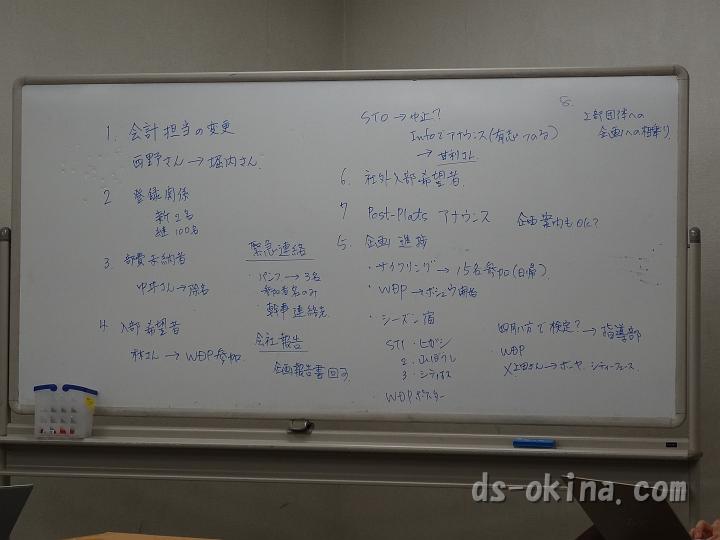 1. 会計担当の変更
西野さん→堀内さん
2 登録関係
新 2名
継 100名
3. 部費未納者
中井さん→除名
4 入部希望者
林さん→WDP参加
緊急連絡
・パンフ→3名
参加者名のみ
・幹事連絡先
会社報告
企画報告書回す
STO→中止?
Infoでアナウンス(有志 つのる)
→甘利さん
6. 社外入部希望者
7 Post-Plats アナウンス
企画案内もOK?
5. 企画進捗
・サカフリング→15名参加(日帰)
・WDP→ボシュウ開始
・シーズン宿
ST1・ヒガシ
2.
3.
・WDPポスター
8. 上部団体への
企画への相乗り
で検定?→指導部
・WDP
ds-okina.com